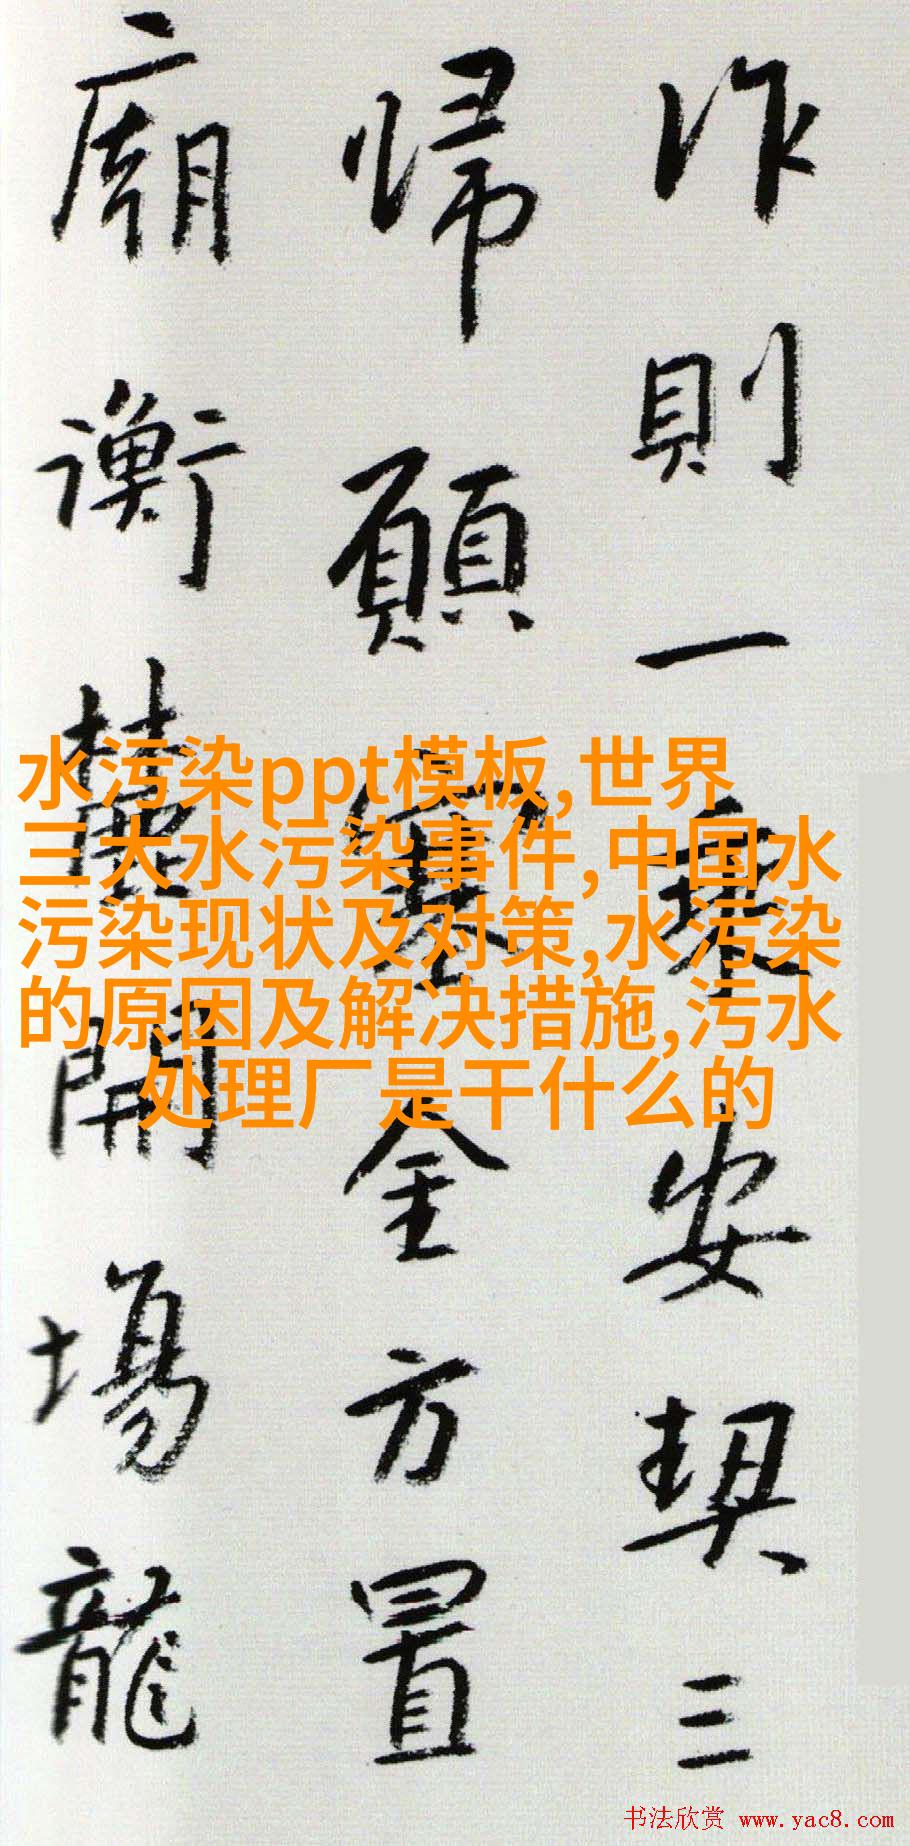 作則一乘安契三
歸願金方置
廟衡開場龍
水污染ppt模板,世界
三大水污染事件,中国水
污染现状及对策,水污染
的原因及解决措施,污水
处理厂是干什么的
书法欣赏 www.yac8.com